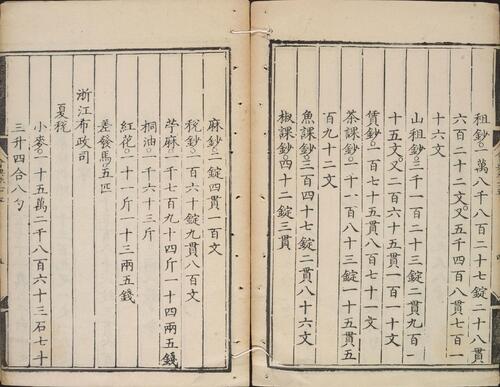 租鈔一萬八千八百二十七錠二十八貫
六百二十二文又五千四百八貫七百一
十六文
山租鈔三千一百二十三錠二貫九百一
十五文又二百六十五貫一百一十文
賃鈔一百七十五貫八百七十一文
茶課鈔一千一百八十三錠一十五貫五
百九十二文
魚課鈔三百四十七錠二貫八十六文
椒課鈔四十二錠三貫
麻鈔二錠四貫一百文
稅鈔一百六十錠九貫八百文
苧麻一千七百九十四斤一十四兩五錢
桐油一千六十三斤
紅花一十一斤一十三兩五錢
差發馬五匹
浙江布政司
夏稅
小麥一十五萬二千八百六十三石七斗
三升四合八勺